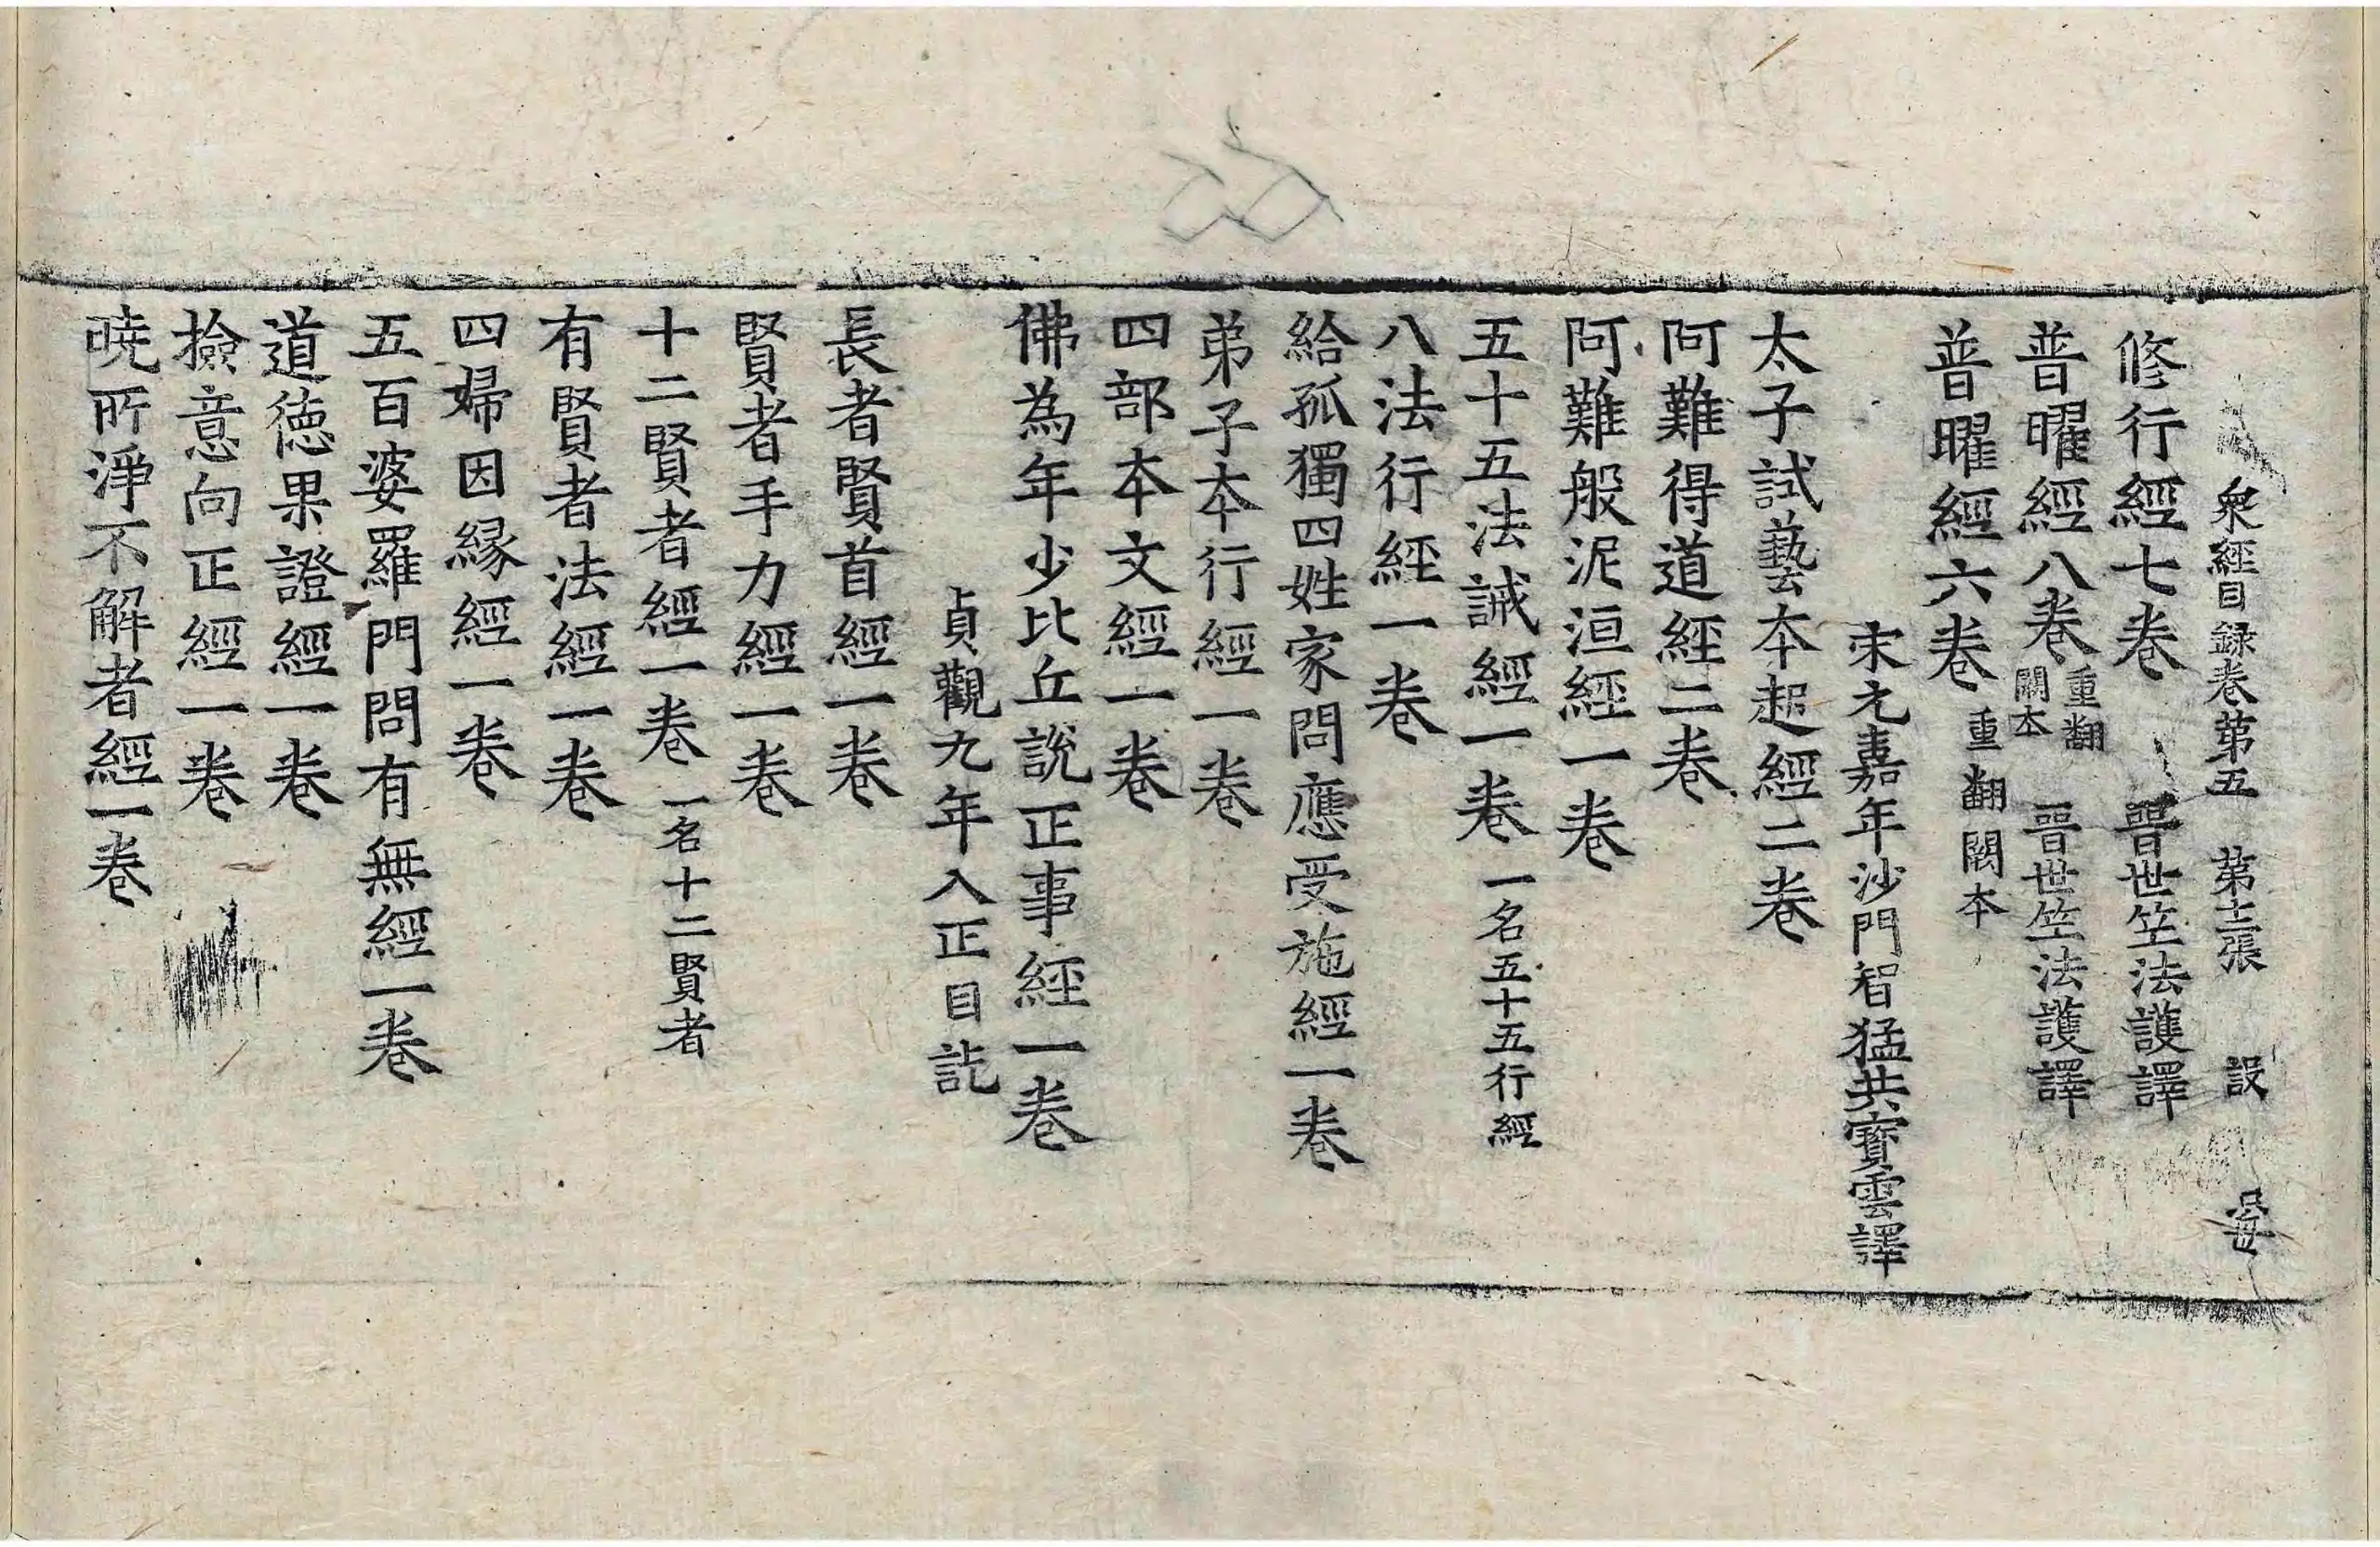 衆經目録卷第五　第十二張　設
修行經七卷　晉世竺法護譯
普曜經八卷重翻闕本　晉世竺法護譯
普曜經六卷　重翻闕本
宋元嘉年沙門智猛共寶雲譯
太子試藝本起經二卷
阿難得道經二卷
阿難般泥洹經一卷
五十五法誡經一卷　一名五十五行經
八法行經一卷
給孤獨四姓家問應受施經一卷
弟子本行經一卷
四部本文經一卷
佛為年少比丘說正事經一卷
貞觀九年入正目訖
長者賢首經一卷
賢者手力經一卷
十二賢者經一卷　一名十二賢者
有賢者法經一卷
四婦因緣經一卷
五百婆羅門問有無經一卷
道德果證經一卷
撿意向正經一卷
曉所淨不解者經一卷